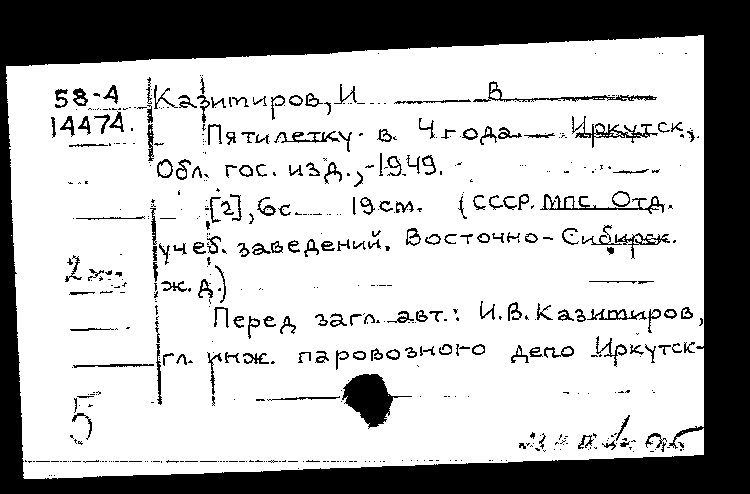 58-4 Казитиров, И В
14474. Пятилетку в 4 года Иркутск,
Обл. гос. изд., 1949.
[2], 6с 19 см. (СССР. МПС. Отд.
учеб. заведений. Восточно-Сибирск.
2 экз
ж.д.)
Перед загл. авт.: И.В. Казитиров,
гл. инж. паровозного депо Иркутск-
5